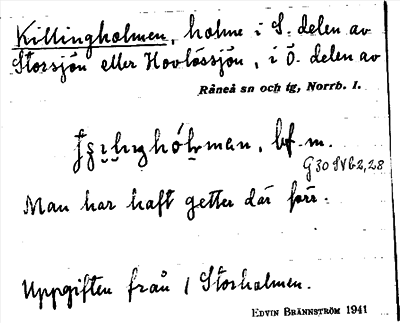 Killingholmen, holme i S. delen av
Storsjön eller Hovlössjön, i Ö. delen av
Råneå sn och tg, Norrb. l.
bf. m.
G 30 IV b 2, 28
Man har haft getter där förr.
Uppgiften från 1 Storholmen.
EDVIN BRÄNNSTRÖM 1941